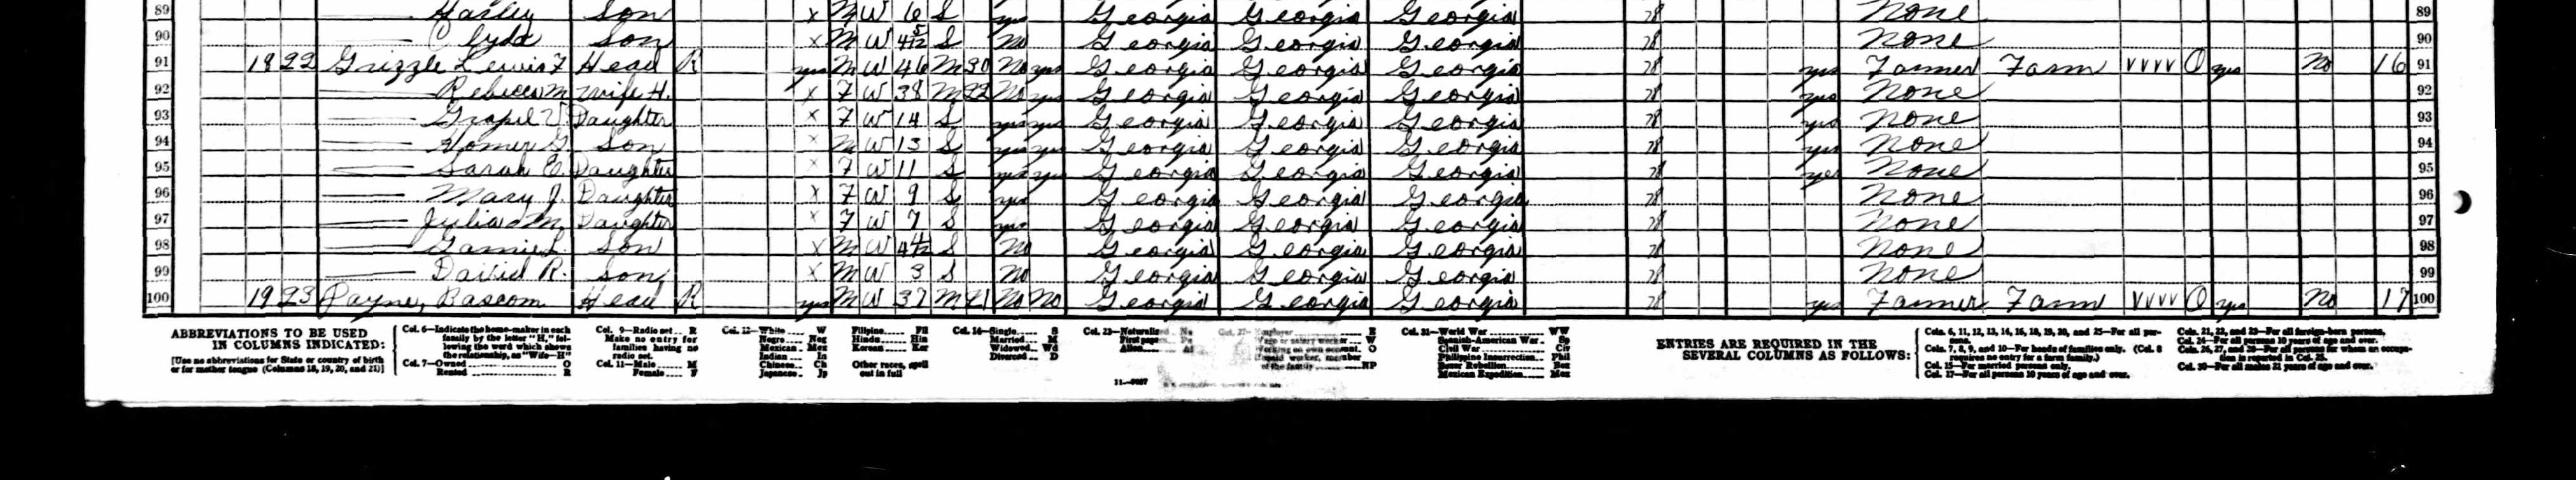 89 Harley Son x M W 6 S yes Georgia Georgia Georgia 78 None 89
90 Clyde Son x M W 4 5/12 S No Georgia Georgia Georgia 78 None 90
91 19 22 Grizzle Lewis F Head R yes M W 46 M 30 No yes Georgia Georgia Georgia 78 yes Farmer Farm VVVV O yes No 16 91
92 Rebecca M Wife H. x F W 38 M 22 No yes Georgia Georgia Georgia 78 yes None 92
93 V Daughter x F W 14 S yes yes Georgia Georgia Georgia 78 yes None 93
94 Homer G Son x M W 13 S yes yes Georgia Georgia Georgia 78 yes None 94
95 Sarah E. Daughter x F W 11 S yes yes Georgia Georgia Georgia 78 yes None 95
96 Mary J. Daughter x F W 9 S yes Georgia Georgia Georgia 78 None 96
97 Julia M. Daughter x F W 7 S yes Georgia Georgia Georgia 78 None 97
98 L. Son x M W 4 S No Georgia Georgia Georgia 78 None 98
99 David R. Son x M W 3 S No Georgia Georgia Georgia 78 None 99
100 19 23 Payne, Bascom Head R yes M W 37 M 21 No No Georgia Georgia Georgia 78 yes Farmer Farm VVVV O yes No 17 100
ABBREVIATIONS TO BE USED
IN COLUMNS INDICATED:
[Use no abbreviations for State or country of birth
or for mother tongue (Columns 18, 19, 20, and 21)]
Col. 6—Indicate the home-maker in each
family by the letter "H," fol-
lowing the word which shows
the relationship, as "Wife—H"
Col. 7—Owned O
Rented R
Col. 9—Radio set R
Make no entry for
families having no
radio set.
Col. 11—Male M
Female F
Col. 12—White W
Negro Neg
Mexican Mex
Indian In
Chinese Ch
Japanese Jp
Filipino Fil
Hindu Hin
Korean Kor
Other races, spell
out in full
Col. 14—Single S
Married M
Widowed Wd
Divorced D
Col. 23—Naturalized Na
First papers Pa
Alien Al
Col. 27—Employer E
Wage or salary worker W
Working on own account O
Unpaid worker, member
of the family NP
Col. 31—World War WW
Spanish-American War Sp
Civil War Civ
Philippine Insurrection Phil
Boxer Rebellion Box
Mexican Expedition Mex
11—9027
ENTRIES ARE REQUIRED IN THE
SEVERAL COLUMNS AS FOLLOWS:
Cols. 6, 11, 12, 13, 14, 16, 18, 19, 20, and 25—For all per-
sons.
Cols. 7, 8, 9, and 10—For heads of families only. (Col. 8
requires no entry for a farm family.)
Col. 15—For married persons only.
Col. 17—For all persons 10 years of age and over.
Cols. 21, 22, and 23—For all foreign-born persons.
Col. 24—For all persons 10 years of age and over.
Cols. 26, 27, and 28—For all persons for whom an occupa-
tion is reported in Col. 25.
Col. 30—For all males 21 years of age and over.